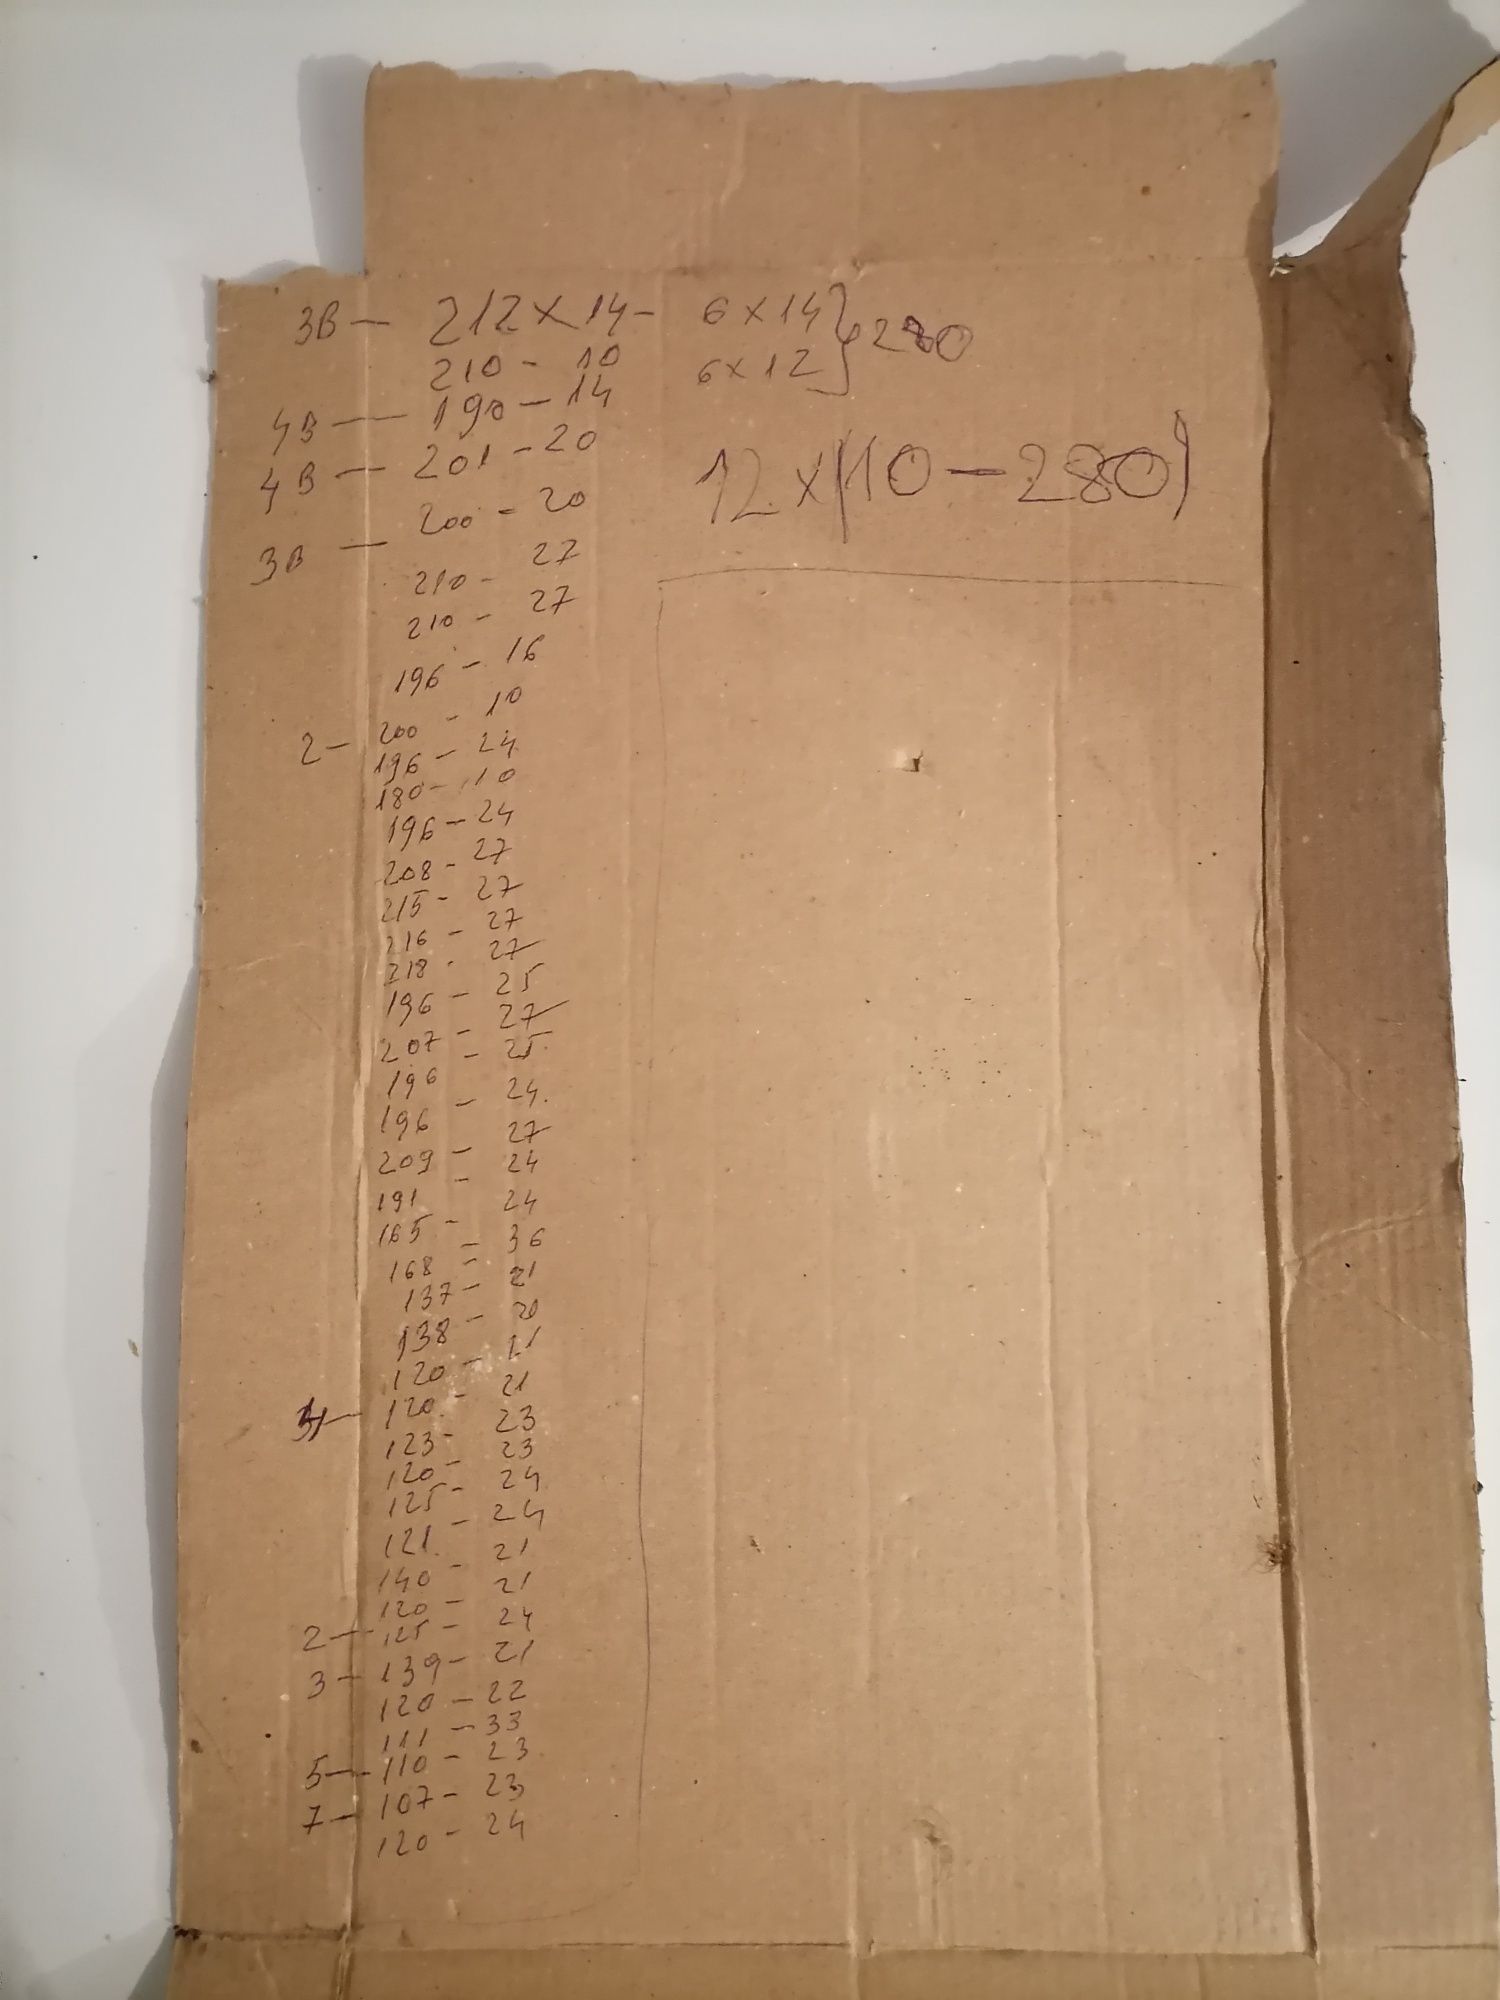 3B — 212 x 14 - 6 x 14 } 280
210 - 10 6 x 12
4B — 190 - 14
4B — 201 - 20 12 x (10 - 280)
200 - 20
3B — 210 - 27
210 - 27
196 - 16
200 - 10
2 - 196 - 24
180 - 10
196 - 24
208 - 27
215 - 27
216 - 27
218 - 27
196 - 25
207 - 27
196 - 25
196 - 24
209 - 27
191 - 24
165 - 24
168 - 36
137 - 21
138 - 20
120 - 21
120 - 21
123 - 23
120 - 23
125 - 24
121 - 24
140 - 21
120 - 21
2 - 125 - 24
3 - 139 - 21
120 - 22
111 - 33
5 - 110 - 23
7 - 107 - 23
120 - 24